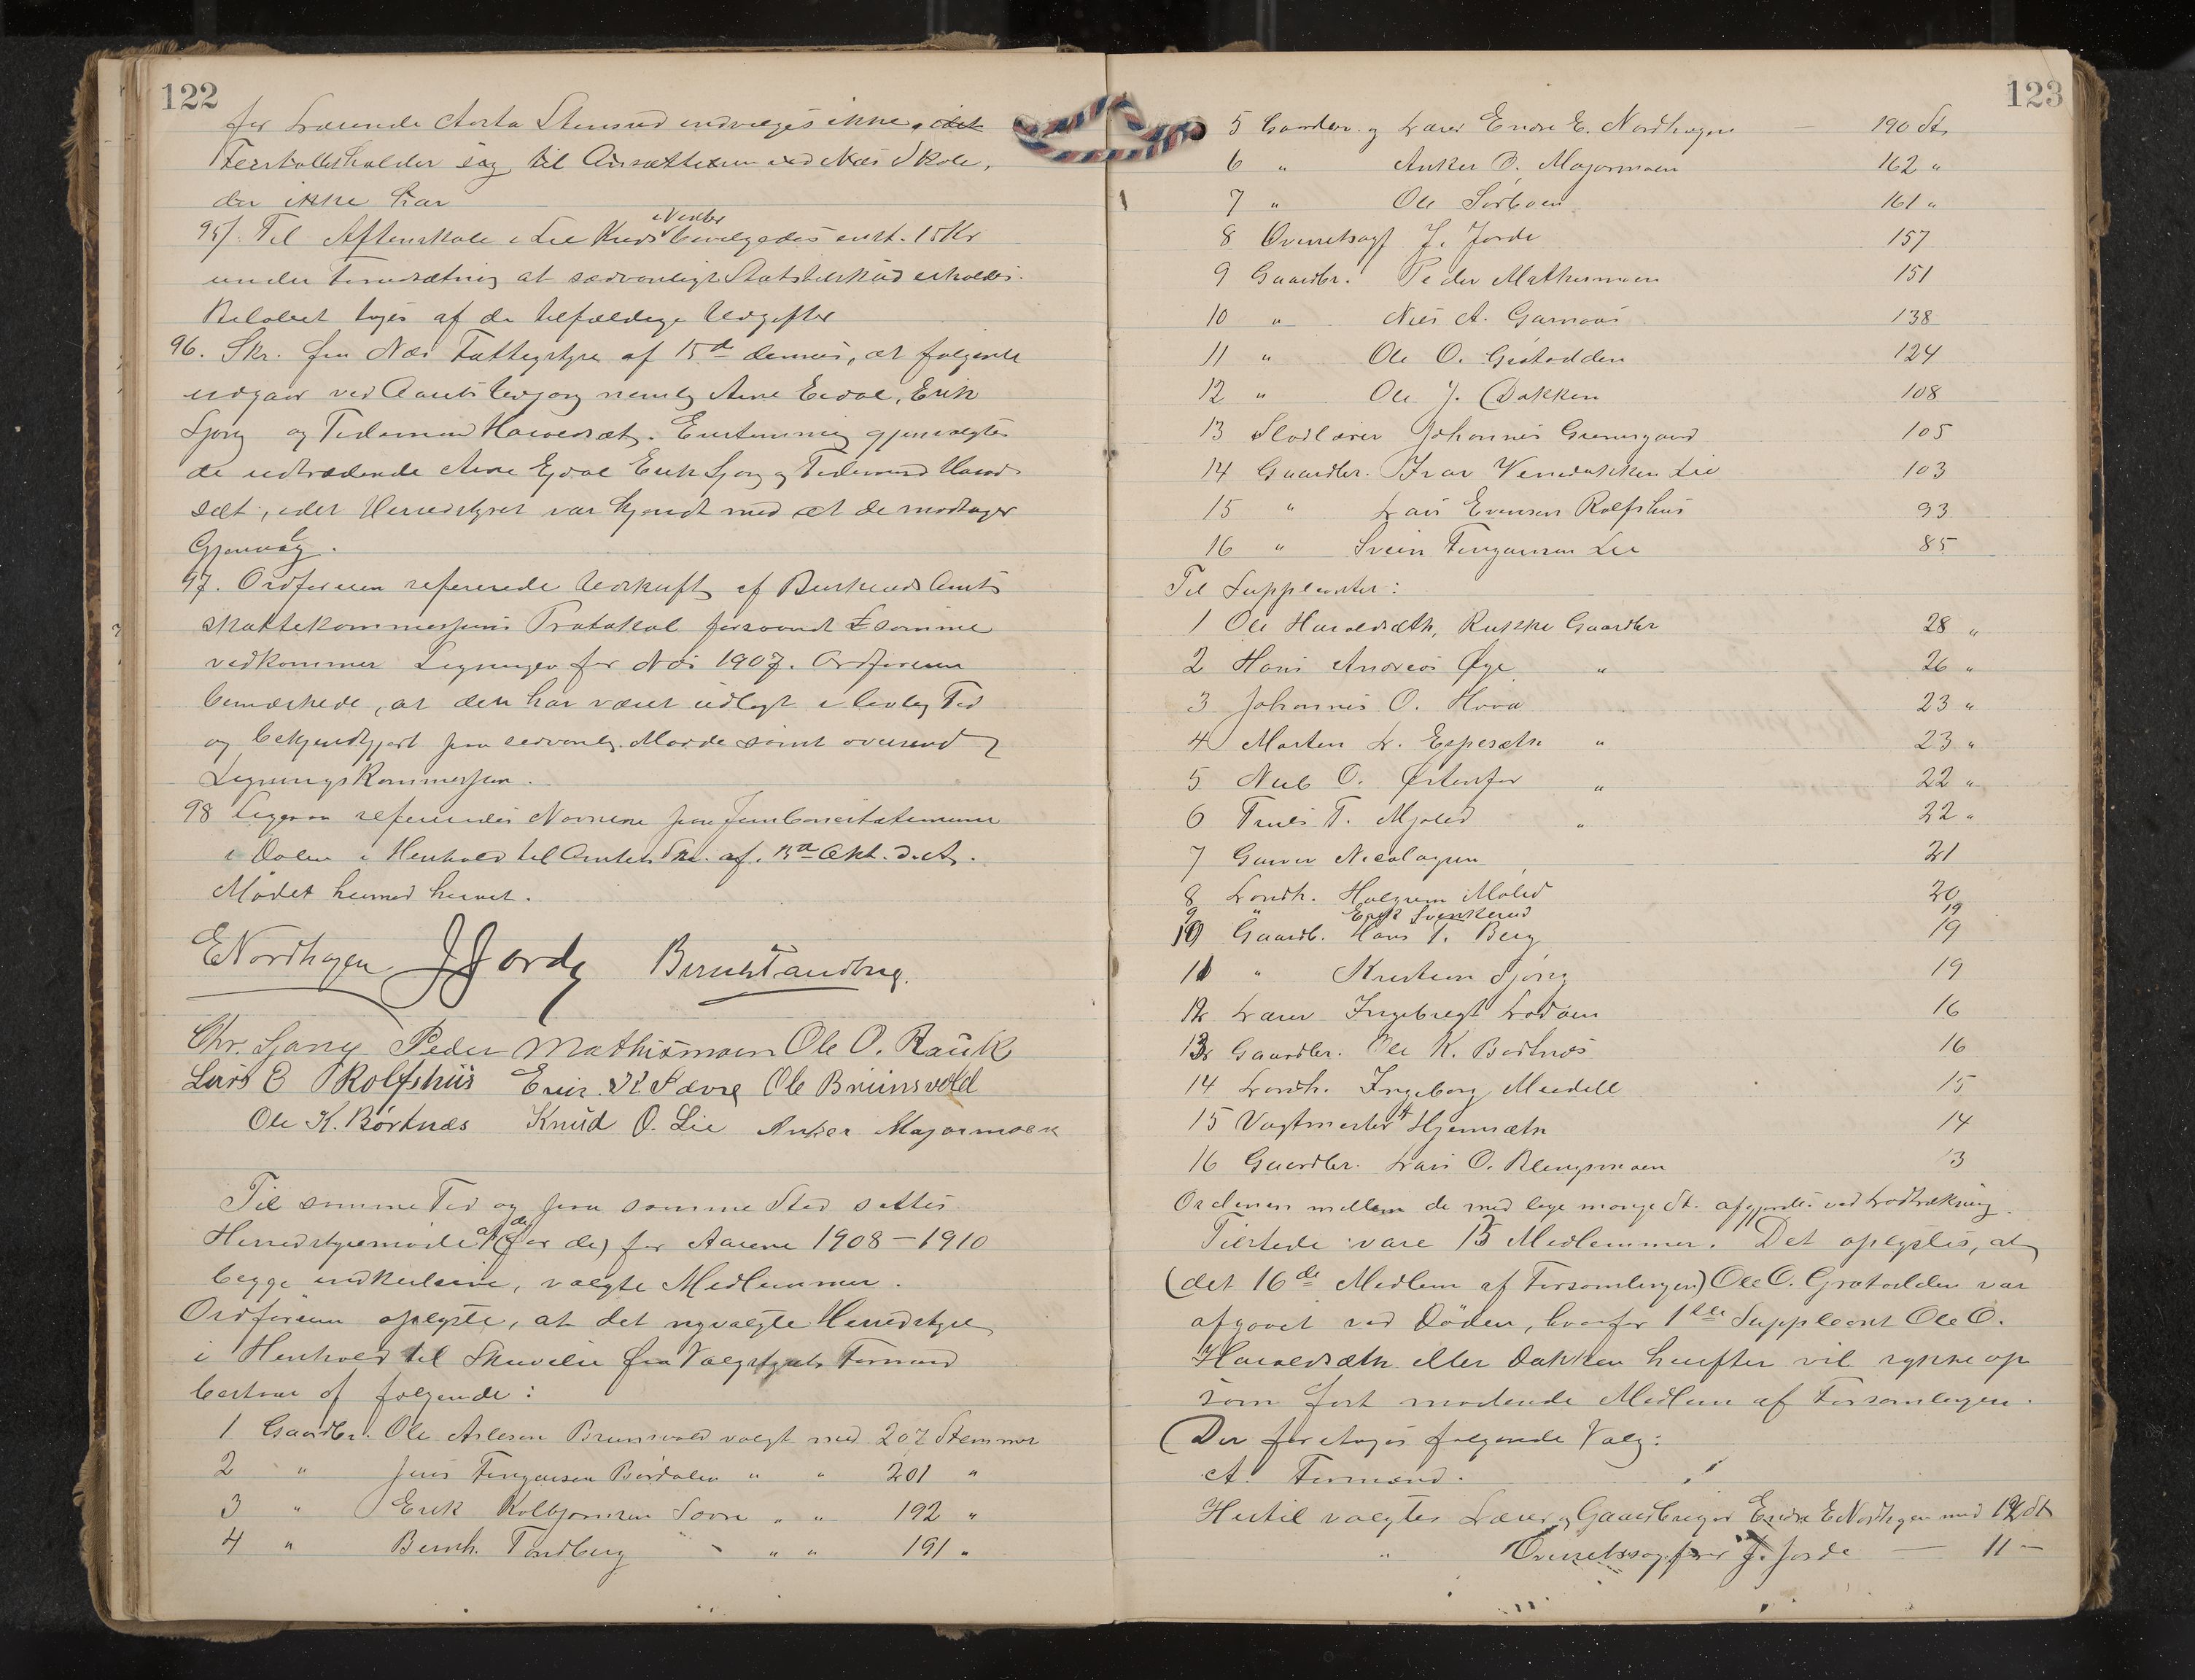 122
for Lærende Marta Stensrud indvælges ikke, idet
Forholdsholder sag til Ansættelsen ved Næs Skole,
der ikke har
95/. Til Aftenskole i Lie Kreds i Vinter bevilgedes enst. 15 Kr
under Forudsætning at sædvanligt Statstilskud erholdes.
Beløbet tages af de tilfældige Udgifter
96. Skr. fra Næs Fattigstyre af 15de dennes, at følgende
udgaar ved Aarets Udgang nemlig Arne Eidal, Erik
Sjong og Tidemand Haraldsæt. Enstemmig gjenvalgtes
de udtrædende Arne Ejdal Erik Sjong og Tidemand Harald-
sæt, idet Herredstyret var kjendt med at de modtager
Gjenvalg.
97. Ordføreren refererede Udskrift af Buskeruds Amts
skattekommissions Protokol forsaavidt samme
vedkommer Ligningen for Næs 1907. Ordføreren
bemærkede, at den har været udlagt i lovlig Tid
og bekjendtgjort paa sedvanlig Maade samt oversend
Ligningskommissjon.
98 Ligesaa refereredes Navnene paa
i Dalen i Henhold til Amtets Skr. af 15de Okt. d.A.
Mødet hermed hævet.
ENordhagen JJorde Bernh Tandberg.
Chr. Sjong Peder Mathismoen Ole O. Rauk
Lars E Rolfshus Erik K Sævre Ole Brunsvold
Ole K. Børtnæs Knud O. Lie Anker Majormoen
Til samme Tid og paa samme Sted sattes
Herredstyremøde af de (for de) for Aarene 1908 – 1910
begge inkluseive, valgte Medlemmer.
Ordføreren oplyste, at det nyvalgte Herredstyre
i Henhold til Skrivelse fra Valgstyrets Formand
bestaar af følgende:
1 Gaardbr. Ole Asleson Brunsvold valgt med 207 Stemmer
2 " Jens Fingarsen Børdalen " " 201 "
3 " Erik Kolbjørnsen Sævre " " 192 "
4 " Bernh. Tandberg " " 191 "
123
5 Gaardbr. og Lærer Endre E. Nordhagen – 190 St.
6 " Anker O. Majormoen 162 "
7 " Ole Sørbøen 161 "
8 Overretssagf J. Jorde 157
9 Gaardbr. Peder Mathismoen 151
10 " Nils A. Garnaas 138
11 " Ole O. Grøtodden 124
12 " Ole J. Dokken 108
13 Slodlærer Johannes Grønsgaard 105
14 Gaardbr. Ivar Venedokken Lie 103
15 " Lars Evensen Rolfshus 93
16 " Svein Fingarsen Lie 85
Til Suppleanter:
1 Ole Haraldsæth, Rukke Gaardbr 28 "
2 Hans Andreas Øye " 26 "
3 Johannes O. Hova 23 "
4 Marten L. Espesæth " 23 "
5 Nub O. Østenfor " 22 "
6 Truls T. Mjøled " 22 "
7 Garver Nicolaysen 21
8 Landh. Halgrim Mølid 20
9 " Erik Svenkerud 19
10 Gaardb. Hans T. Berg 19
11 " Kristian Sjong 19
12 Lærer Ingebregt Lodøen 16
13 Gaardbr. Ole K. Børtnæs 16
14 Landh. Ingeborg Meidell 15
15 Vagtmester H Hjemsæth 14
16 Gaardbr. Lars O. Blengsmoen 13
Ordenen mellem de med lige mange St. afgjordes ved Lodtrækning.
Tilstede vare 15 Medlemmer. Det oplystes, at
(det 16de Medlem af Forsamlingen) Ole O. Grøtodden var
afgaaet ved Døden, hvorfor 1ste Suppleant Ole O.
Haraldsæth eller Dokken herefter vil rykke op
som fast mødende Medlem af Forsamlingen.
Der foretoges følgende Valg:
A. Formand.
Hertil valgtes Lærer og Gaardbruger Endre E Nordhagen med 12 St
" Overretssagfører J. Jorde — 11 –